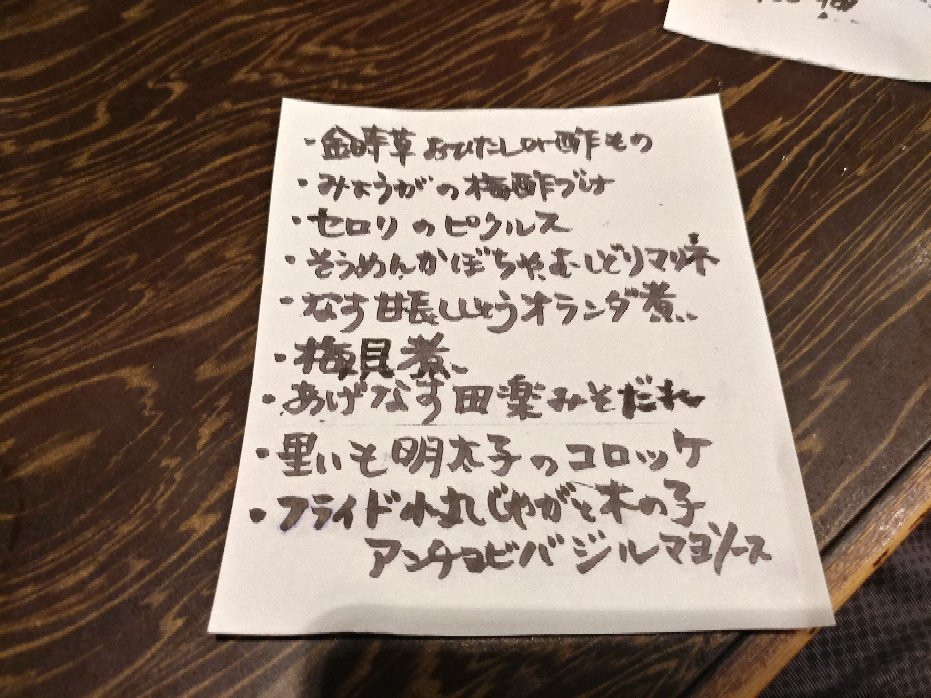 ・金時草おひたしor酢もの
・みょうがの梅酢づけ
・セロリのピクルス
・そうめんかぼちゃむしどりマリネ
・なす甘長ししとうオランダ煮
・梅貝煮
・あげなす田楽みそだれ
・里いも明太子のコロッケ
・フライド小丸じゃがと木の子
アンチョビバジルマヨソース